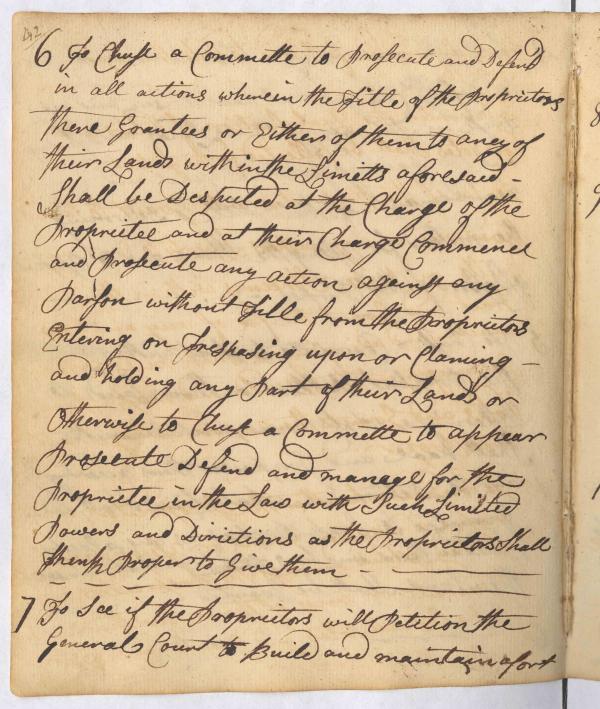 6 To Chuse a Committe to Prosecute and Defend
in all actions wherein the Title of the Proprietors
there Grantees or Eithers of them to aney of
their Lands within the Limetts aforesaid -
Shall be Desputed at the Charge of the
Proprietee and at their Charge Commence
and Prosecute any action against any
Parson without Title from the Proprietors
Entering on Trespasing upon or Claming -
and holding any Part of their Lands or
Otherwise to Chuse a Committe to appear
Prosecute Defend and manage for the
Proprietee in the Law with Such Limited
Powers and Dirictions as the Proprietors Shall
thenk Proper to Give them -
7 To See if the Proprietors will Petition the
General Court to Build and maintain a fort